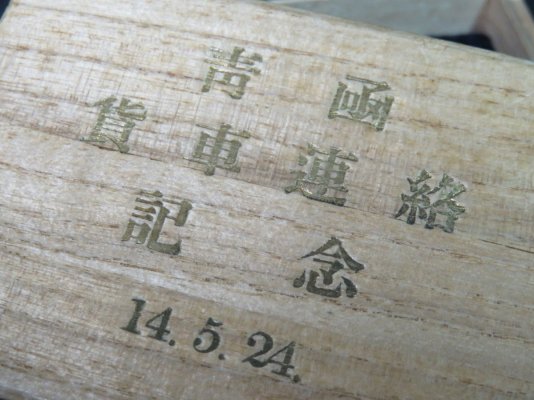 青函
貨車連絡
記念
14.5.24.